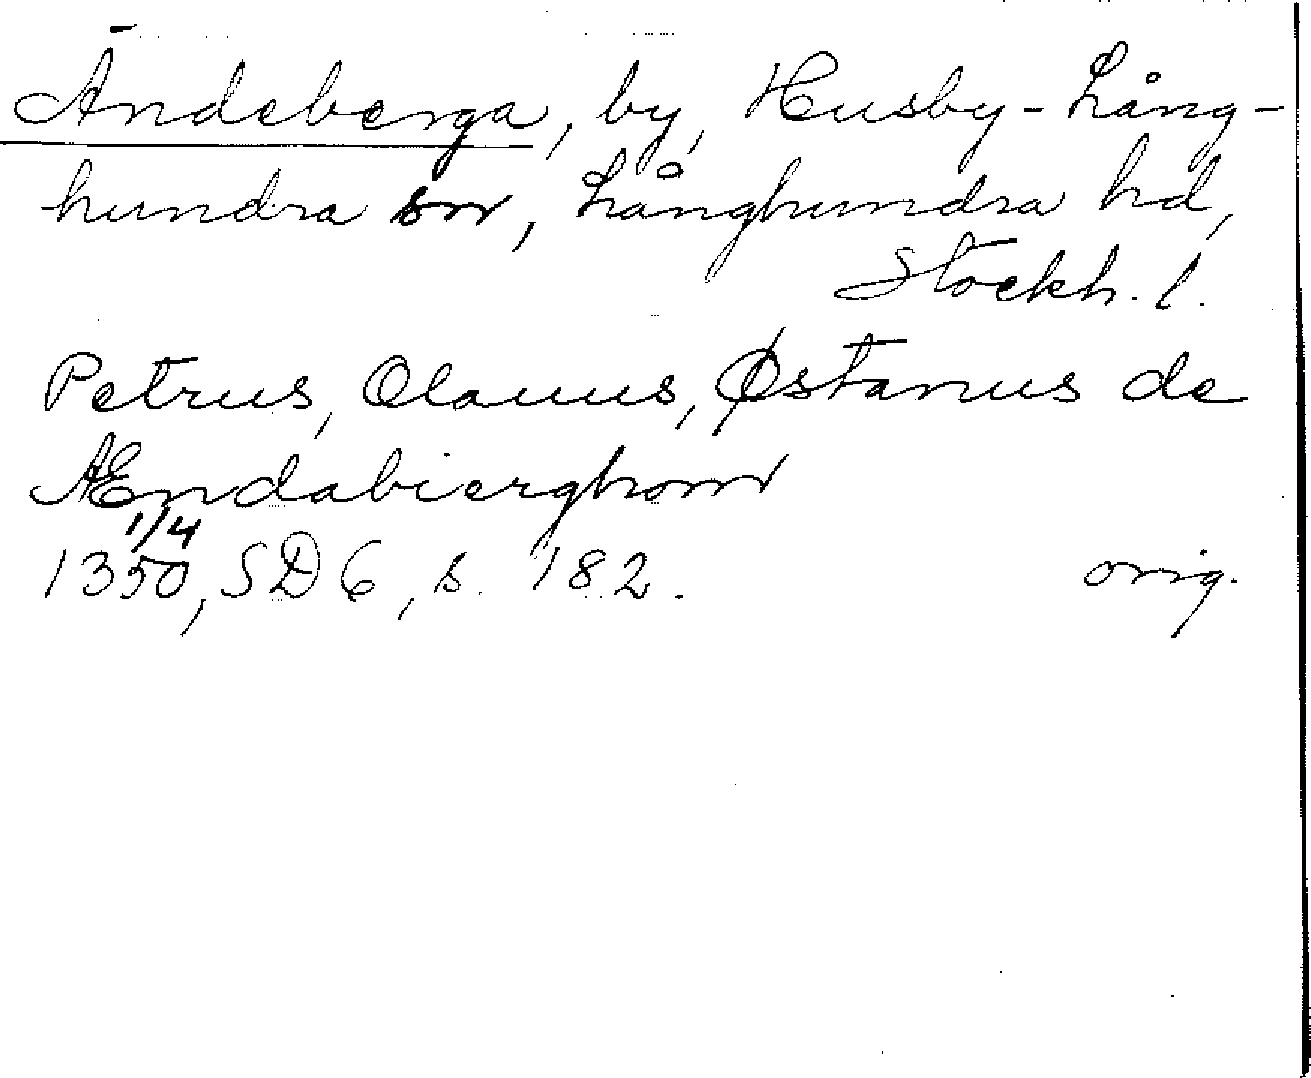 Ändeberga, by, Husby-Lång-
hundra sn, Långhundra hd,
Stockh. l.
Petrus, Olauus, Østanus de
Ændabierghom
1/4
1350, SD 6, s. 182. orig.